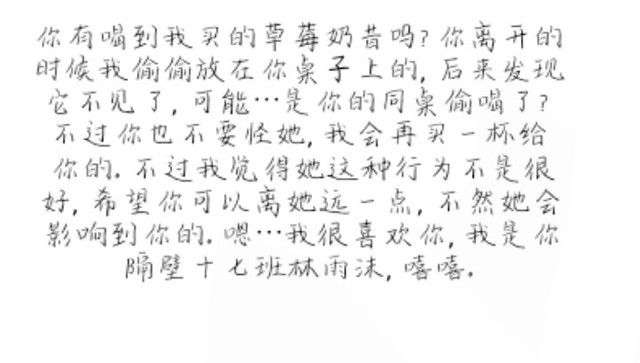 你有喝到我买的草莓奶昔吗?你离开的
时候我偷偷放在你桌子上的,后来发现
它不见了,可能…是你的同桌偷喝了?
不过你也不要怪她,我会再买一杯给
你的.不过我觉得她这种行为不是很
好,希望你可以离她远一点,不然她会
影响到你的.嗯…我很喜欢你,我是你
隔壁十七班林雨沫,嘻嘻.